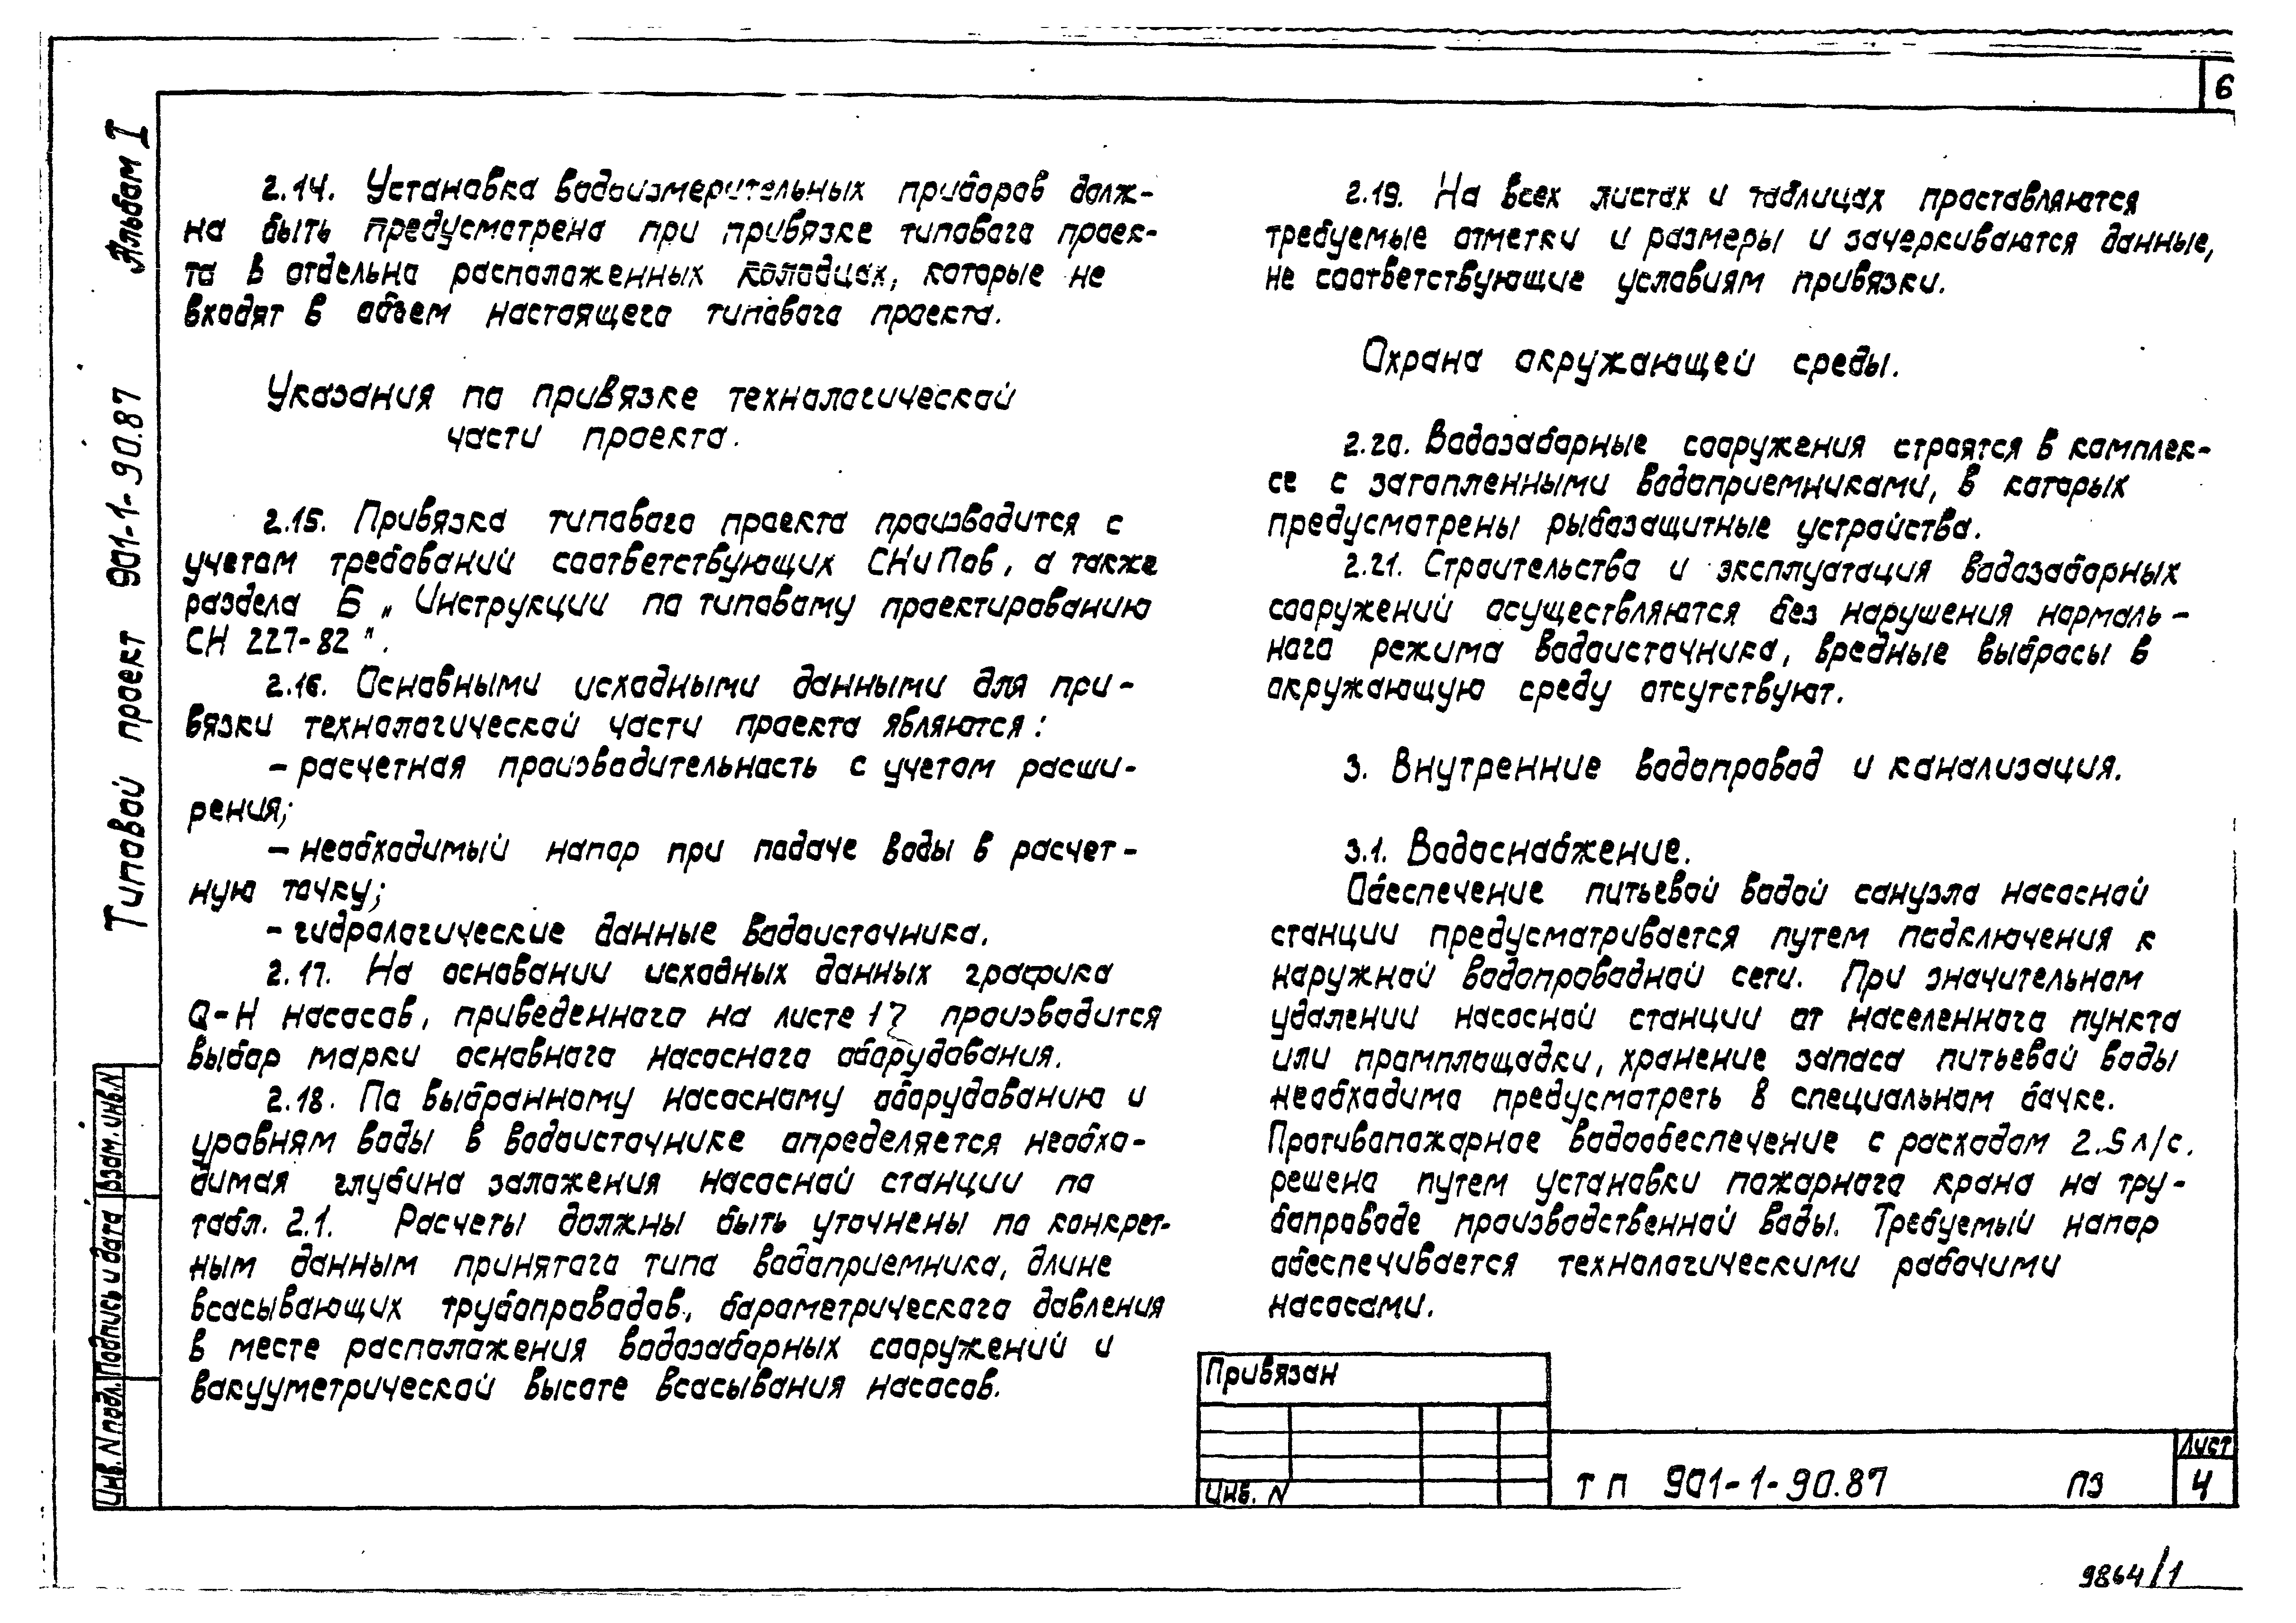 6
Альбом I
Типовой проект 901-1-90.87
2.14. Установка водоизмерительных приборов долж-
на быть предусмотрена при привязке типового проек-
та в отдельно расположенных колодцах, которые не
входят в объем настоящего типового проекта.
Указания по привязке технологической
части проекта.
2.15. Привязка типового проекта производится с
учетом требований соответствующих СНиПов, а также
раздела 6 „Инструкции по типовому проектированию
СН 227-82".
2.16. Основными исходными данными для при-
вязки технологической части проекта являются:
- расчетная производительность с учетом расши-
рения;
- необходимый напор при подаче воды в расчет-
ную точку;
- гидрологические данные водоисточника.
2.17. На основании исходных данных графика
Q-H насосов, приведенного на листе 17 производится
выбор марки основного насосного оборудования.
2.18. По выбранному насосному оборудованию и
уровням воды в водоисточнике определяется необхо-
димая глубина заложения насосной станции по
табл. 2.1. Расчеты должны быть уточнены по конкрет-
ным данным принятого типа водоприемника, длине
всасывающих трубопроводов, барометрического давления
в месте расположения водозаборных сооружений и
вакууметрической высоте всасывания насосов.
2.19. На всех листах и таблицах проставляются
требуемые отметки и размеры и зачеркиваются данные,
не соответствующие условиям привязки.
Охрана окружающей среды.
2.20. Водозаборные сооружения строятся в комплек-
се с затопленными водоприемниками, в которых
предусмотрены рыбозащитные устройства.
2.21. Строительство и эксплуатация водозаборных
сооружений осуществляются без нарушения нормаль-
ного режима водоисточника, вредные выбросы в
окружающую среду отсутствуют.
3. Внутренние водопровод и канализация.
3.1. Водоснабжение.
Обеспечение питьевой водой санузла насосной
станции предусматривается путем подключения к
наружной водопроводной сети. При значительном
удалении насосной станции от населенного пункта
или промплощадки, хранение запаса питьевой воды
необходимо предусмотреть в специальном бачке.
Противопожарное водообеспечение с расходом 2.5 л/с.
решено путем установки пожарного крана на тру-
бопроводе производственной воды. Требуемый напор
обеспечивается технологическими рабочими
насосами.
Инв. N подл. Подпись и дата Взам. инв. N
Привязан
Инв. N
ТП 901-1-90.87 ПЗ
Лист
4
9864/1